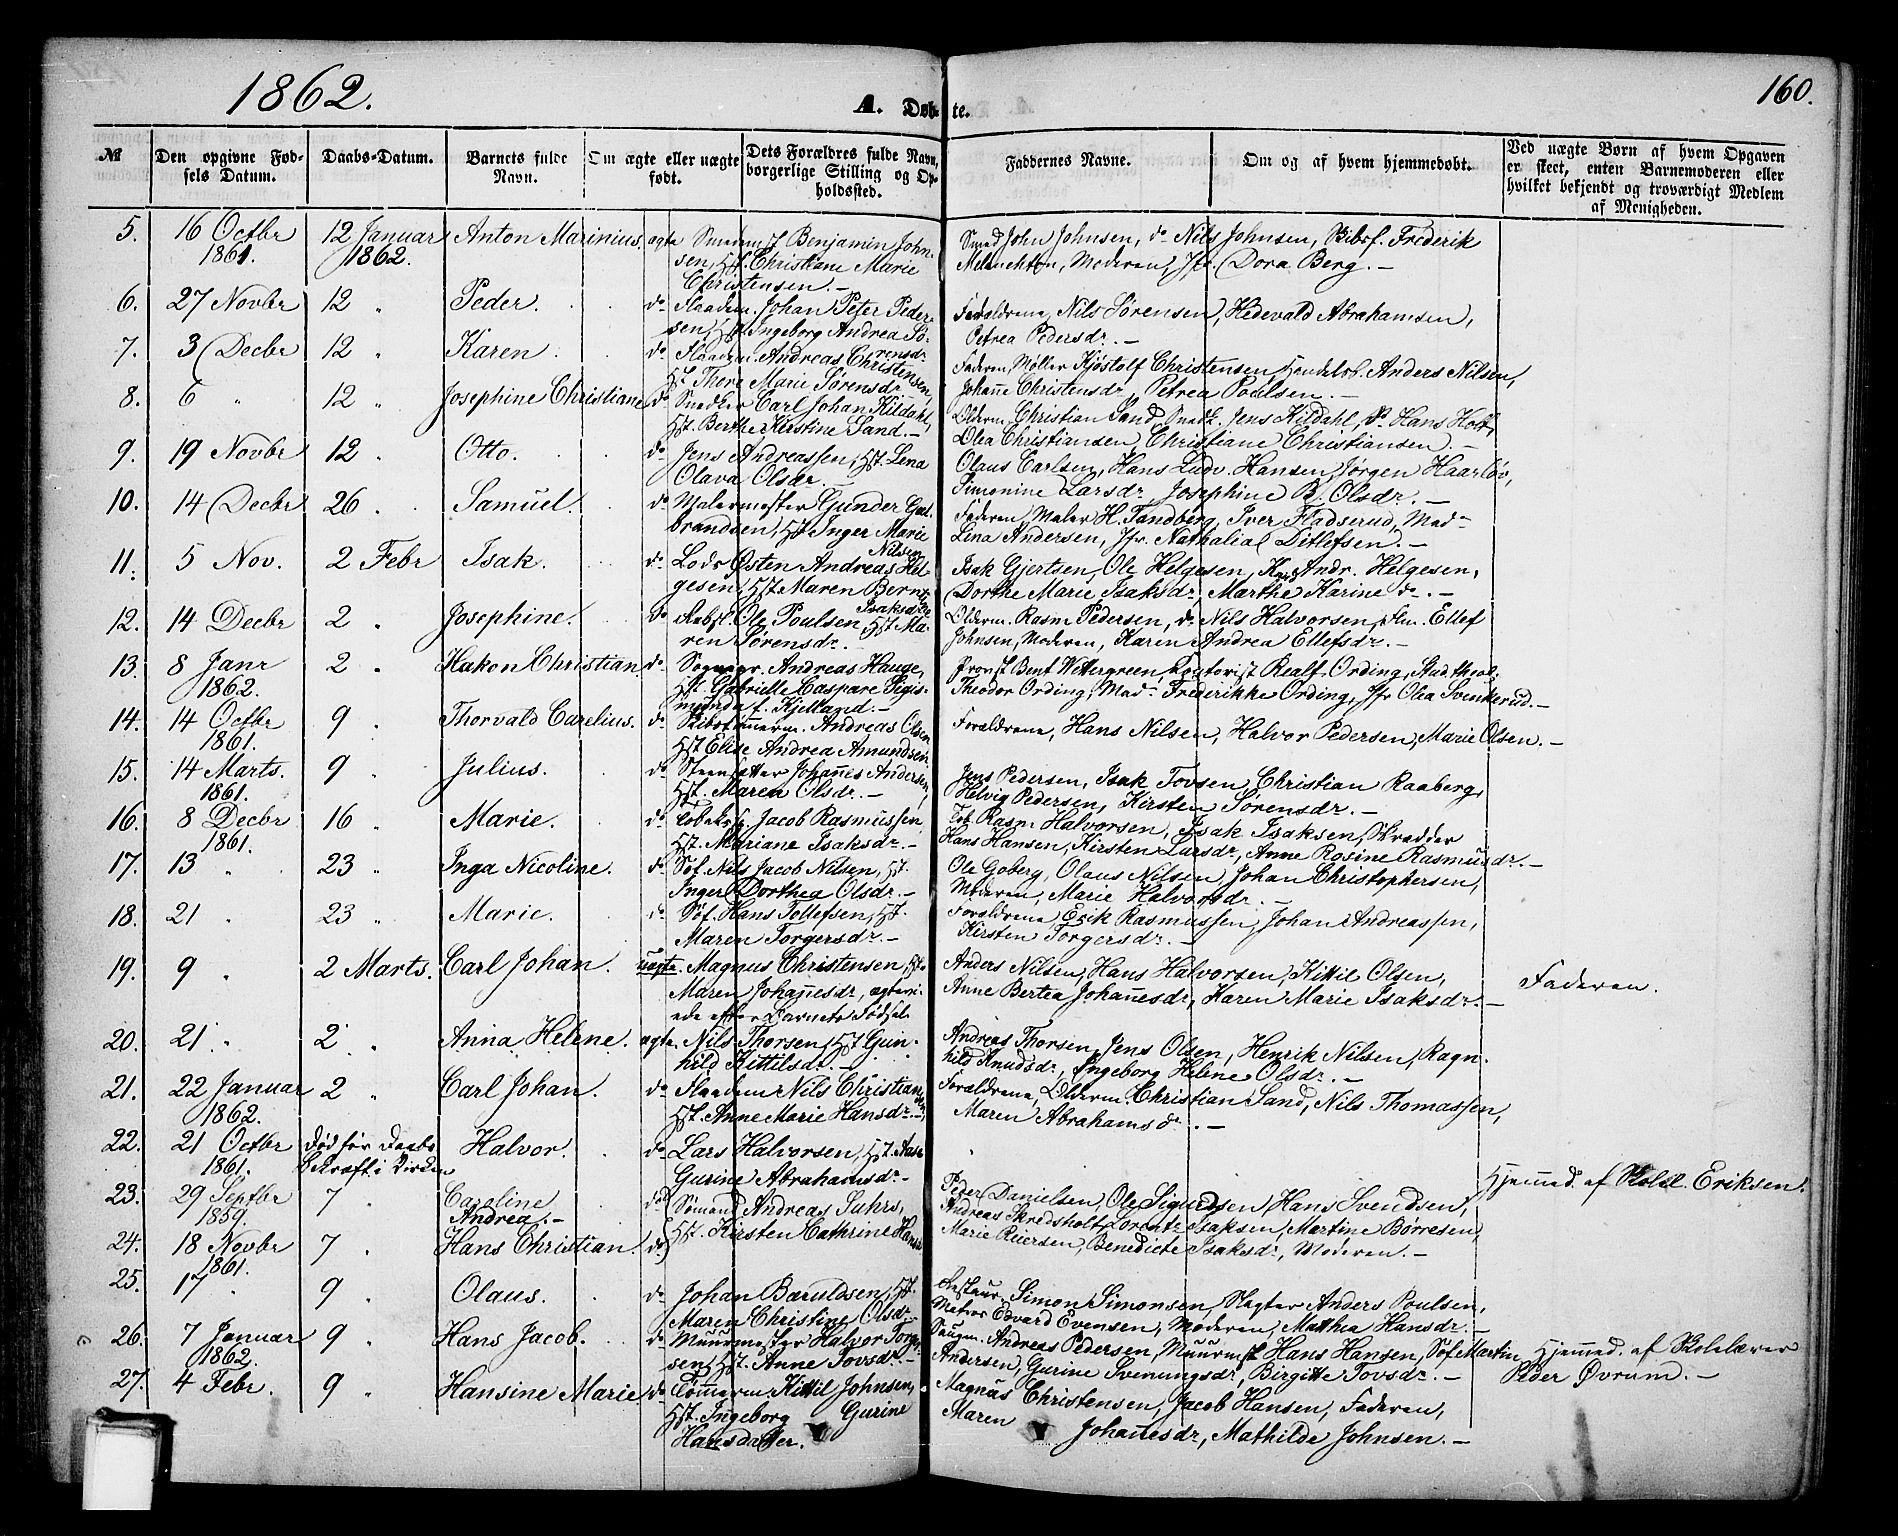 1862.
A. Døbte.
160.
№
Den opgivne Fødselsdatum.
Daabs-Datum.
Barnets fulde Navn.
Om ægte eller uægte født.
Dets Forældres fulde Navn, borgerlige Stilling og Opholdssted.
Faddernes Navne.
Om og af hvem hjemmedøbt.
Ved uægte Børn af hvem Opgaven er skeet, enten Barnemoderen eller hvilket bekjendt og troværdigt Medlem af Menigheden.
5. 16 Octbr 1861. 12 Januar 1862. Anton Marinius. ægte Smedem st Benjamin Johnsen, Hst. Christiane Marie Christensen.—
Smed John Johnsen, do Nils Johnsen, Skibsf. Frederik
Melanchton, Moderen, Jfr. Dora Berg.—
6. 27 Novbr 12 " Peder. do Flaadem. Johan Peter Pedersen, Hst Ingeborg Andrea Sørensdr
Forældrene, Nils Sørensen, Hedevald Abrahamsen,
Petrea Pedersdr.—
7. 3 Decbr 12 " Karen. do Flaadem. Andreas Christensen, Hst. There Marie Sørensdr
Faderen, Møller Kjøstolf Christensen, Handelsb. Anders Nilsen,
Johanne Christensdr, Petrea Poulsen.—
8. 6 " 12 " Josephine Christiane do Snedker Carl Johan Kildahl, Hst. Berthe Kirstine Sand.—
Olderm. Christian Sand, Snedk. Jens Kildahl, do Hans Holt,
Olea Christiansen, Christiane Christiansen.—
9. 19 Novbr 12 " Otto. do Jens Andreassen, Hst. Lena Olava Olsdr.—
Olaus Carlsen, Hans Ludv. Hansen, Jørgen Haarløv,
Simonine Larsdr, Josephine B. Olsdr.—
10. 14 Decbr 26 " Samuel. do Malermester Gunder Gulbrandsen, Hst Inger Marie Nilsen
Faderen, Maler H. Tandberg, Iver Fladserud, Mad.
Lina Andersen, Jfr. Nathalia Ditlefsen.—
11. 5 Nov. 2 Febr Isak. do Lods Østen Andreas Helgesen, Hst Maren Bernt. Isaksdr
Isak Gjertsen, Ole Helgesen, Andr. Helgesen,
Dorthe Marie Isaksdr, Marthe Karine do.—
12. 14 Decbr 2 " Josephine. do Ole Poulsen, Hst Maren Sørensdr.
Olderm. Rasm Pedersen, do Nils Halvorsen, Flm. Ellef
Johnsen, Moderen, Karen Andrea Ellefsdr.—
13. 8 Janr 1862. 2 " Hakon Christian. do Sognepr. Andreas Hauge, Hst. Gabrielle Caspare Sigismunda f. Kjelland.—
Provst Bent Wettergreen, Realf Ording, Stud. theol.
Theodor Ording, Mad. Frederikke Ording, Jfr Olea Svenkerud.—
14. 14 Octbr 1861. 9 " Thorvald Carelius. do Skibstømerm. Andreas Olsen, Hst Elise Andrea Amundsen.
Forældrene, Hans Nilsen, Halvor Pedersen, Marie Olsen.—
15. 14 Marts. 1861. 9 " Julius. do Steensætter Johannes Andersen, Hst. Maren Olsdr.—
Jens Pedersen, Isak Tovsen, Christian Raaberg,
Helvig Pedersen, Kirsten Sørensdr.—
16. 8 Decbr 1861. 16 " Marie. do Jacob Rasmussen, Hst. Mariane Isaksdr.—
Rasm Halvorsen, Isak Isaksen, Skrædder
Hans Hansen, Kirsten Larsdr, Anne Rosine Rasmusdr.—
17. 13 " 23 " Inga Nicoline. do Søf. Nils Jacob Nilsen, Hst. Inger Dorthea Olsdr.—
Ole Goberg, Olaus Nilsen, Johan Christophersen,
Moderen, Marie Halvorsdr.—
18. 21 " 23 " Marie. do Søf. Hans Tollefsen, Hst. Maren Torgersdr.—
Forældrene, Erik Rasmussen, Johan Andreassen,
Kirsten Torgersdr.—
19. 9 " 2 Marts. Carl Johan. uægte. Magnus Christensen, Hst. Maren Johannesdr, ægteviede efter Barnets Fødsel.
Anders Nilsen, Hans Halvorsen, Kittil Olsen,
Anne Bertea Johannesdr, Karen Marie Isaksdr.—
Faderen.
20. 21 " 2 " Anna Helene. ægte. Nils Thorsen, Hst Gunhild Kittilsdr.—
Andreas Thorsen, Jens Olsen, Henrik Nilsen, Ragnhild Knudsdr, Ingeborg Helene Olsdr.—
21. 22 Januar 1862. 2 " Carl Johan. do Flaadem Nils Christian, Hst. Anne Marie Hansdr.—
Forældrene, Olderm. Christian Sand, Nils Thomassen,
Maren Abrahamsdr.—
22. 21 Octbr 1861. Død før Daabs bekræft i Kirken Halvor. do Lars Halvorsen, Hst. Aase Gurine Abrahamsdr.—
Hjemmed. af Skolel. Eriksen.
23. 29 Septbr 1859. 7 " Caroline Andrea.— do Sømand Andreas Suhrs,
Peder Danielsen, Ole Sigurdsen, Hans Svendsen,
Andreas Skredsholt, Lorentz Isaksen, Martine Børresen,
24. 18 Novbr 1861. 7 " Hans Christian. do Hst. Kirsten Cathrine
Marie Reiersen, Benedicte Isaksdr, Moderen.—
25. 17 " 9 " Olaus. do Johan Baruldsen, Hst. Maren Christine Olsdr.
Restaur. Simon Simonsen, Slagter Anders Poulsen,
Matros Edvard Evensen, Moderen, Mathia Hansdr.—
26. 7 Januar 1862. 9 " Hans Jacob. do Muurmester Halvor Torgersen, Hst. Anne Tovsdr.—
Saugm. Andreas Pedersen, Muurmst Hans Hansen, Søf. Martin
Andersen, Gurine Svenungsdr, Birgitte Tovsdr.—
Hjemmed. af Skolelærer
Peder Øvrum.—
27. 4 Febr. 9 " Hansine Marie do Tømmerm. Kittil Johnsen, Hst. Ingeborg Gurine Hansdatter.
Magnus Christensen, Jacob Hansen, Faderen,
Maren Johannesdr, Mathilde Johnsen.—